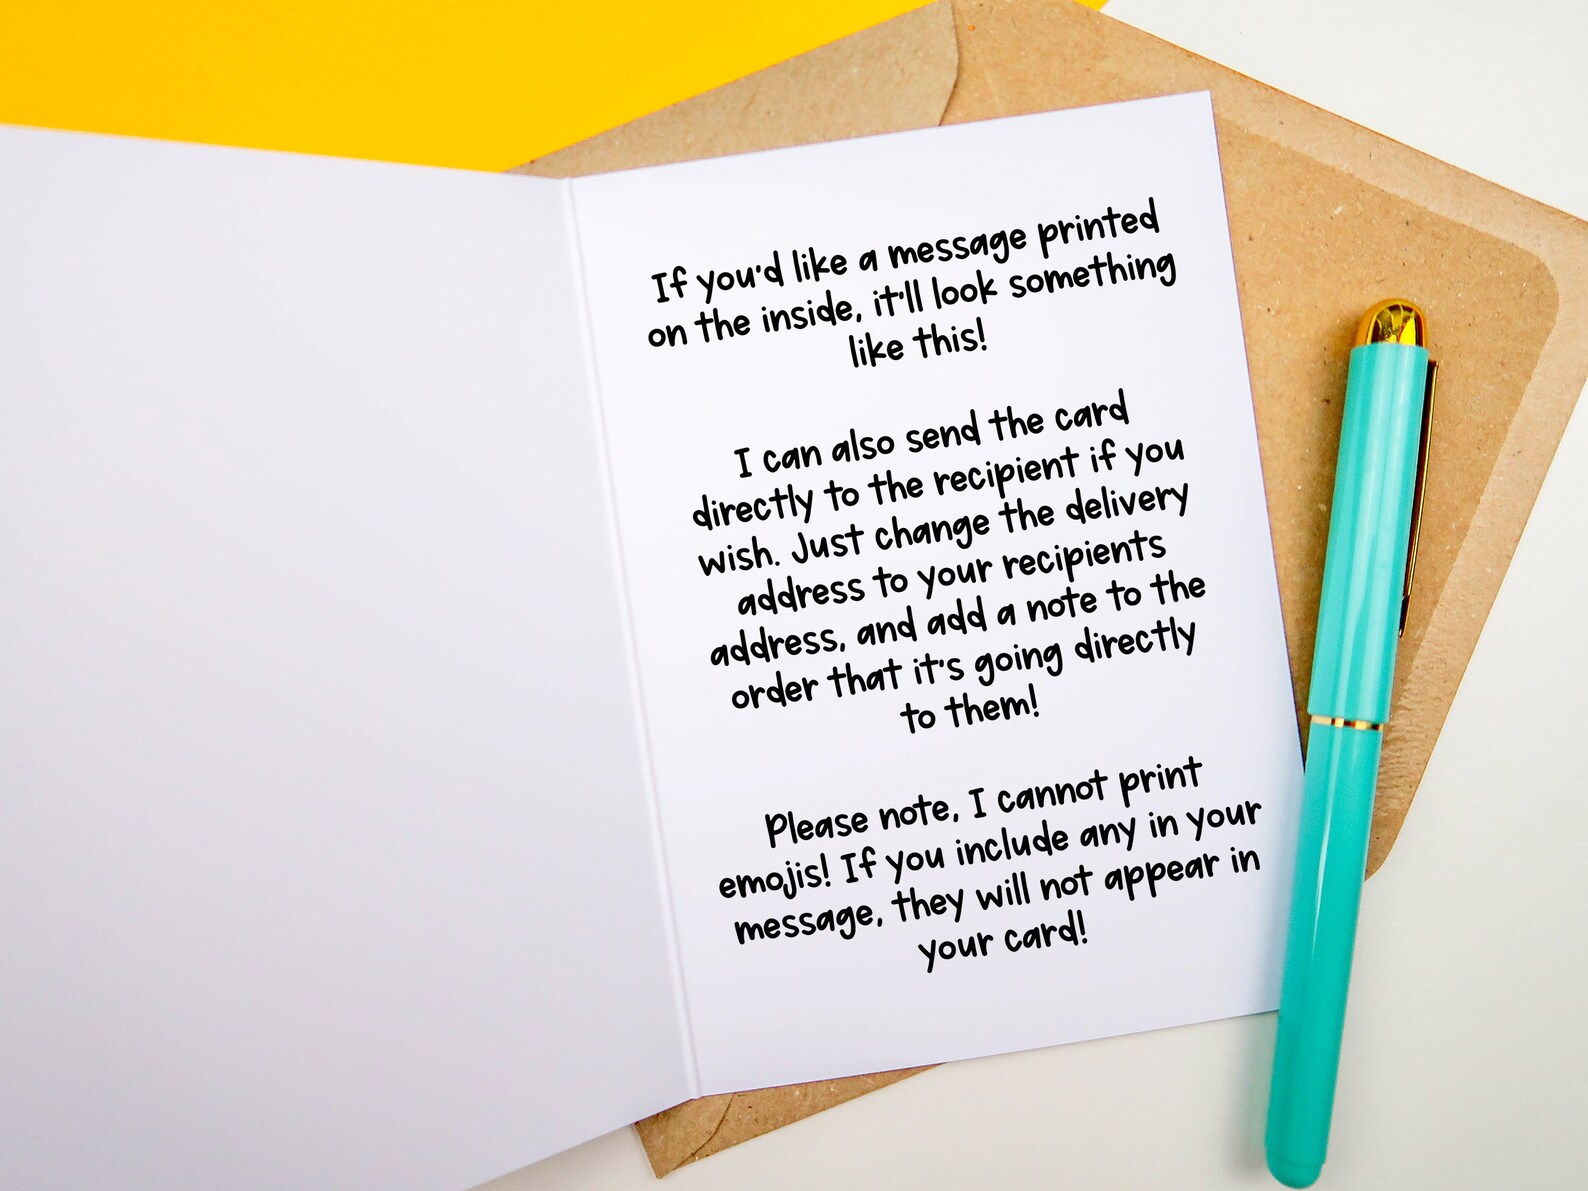 If you'd like a message printed
on the inside, it'll look something
like this!
I can also send the card
directly to the recipient if you
wish. Just change the delivery
address to your recipients
address, and add a note to the
order that it's going directly
to them!
Please note, I cannot print
emojis! If you include any in your
message, they will not appear in
your card!